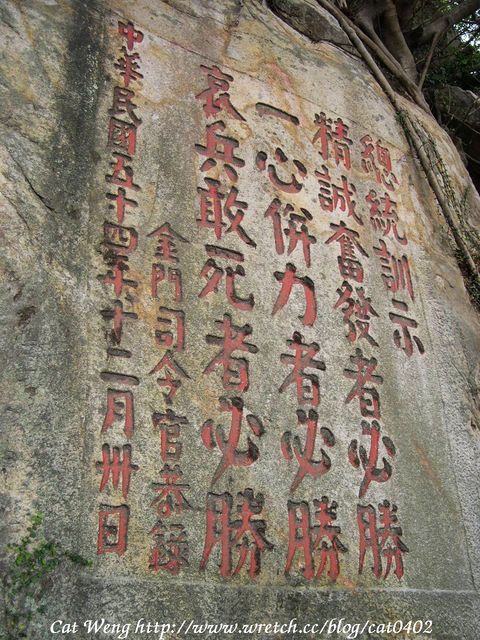 總統訓示
精誠奮發者必勝
一心併力者必勝
哀兵敢死者必勝
金門司令官恭錄
中華民國五十四年十二月卅日
Cat Weng http://www.wretch.cc/blog/cat0402